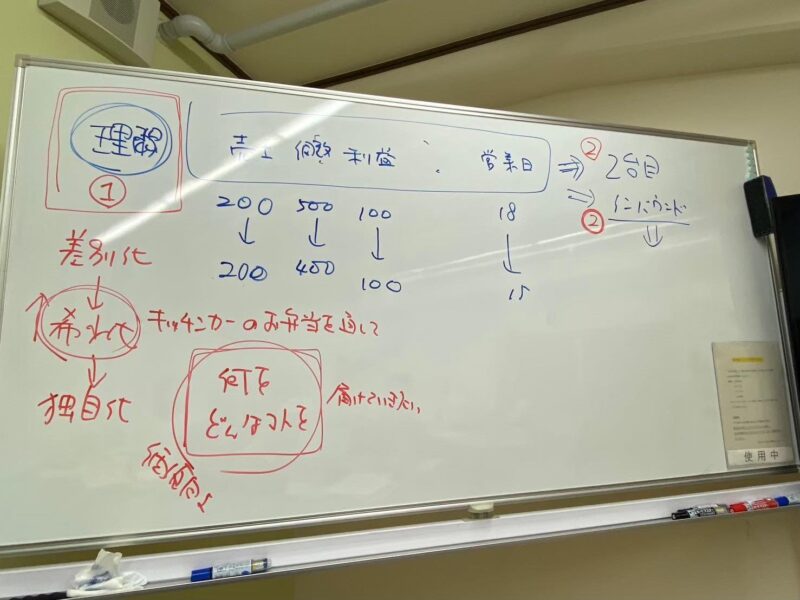 理想
①
売上 個数 利益 営業日
200 500 100 18
↓ ↓ ↓ ↓
200 400 100 15
⇒ ② 2台目
⇒ ② インバウンド
⇓
差別化
↓
↑ 希少化 キッチンカーのお弁当を通して
↓
独自化
何を
どんなコトを 届けていきたい
使用中